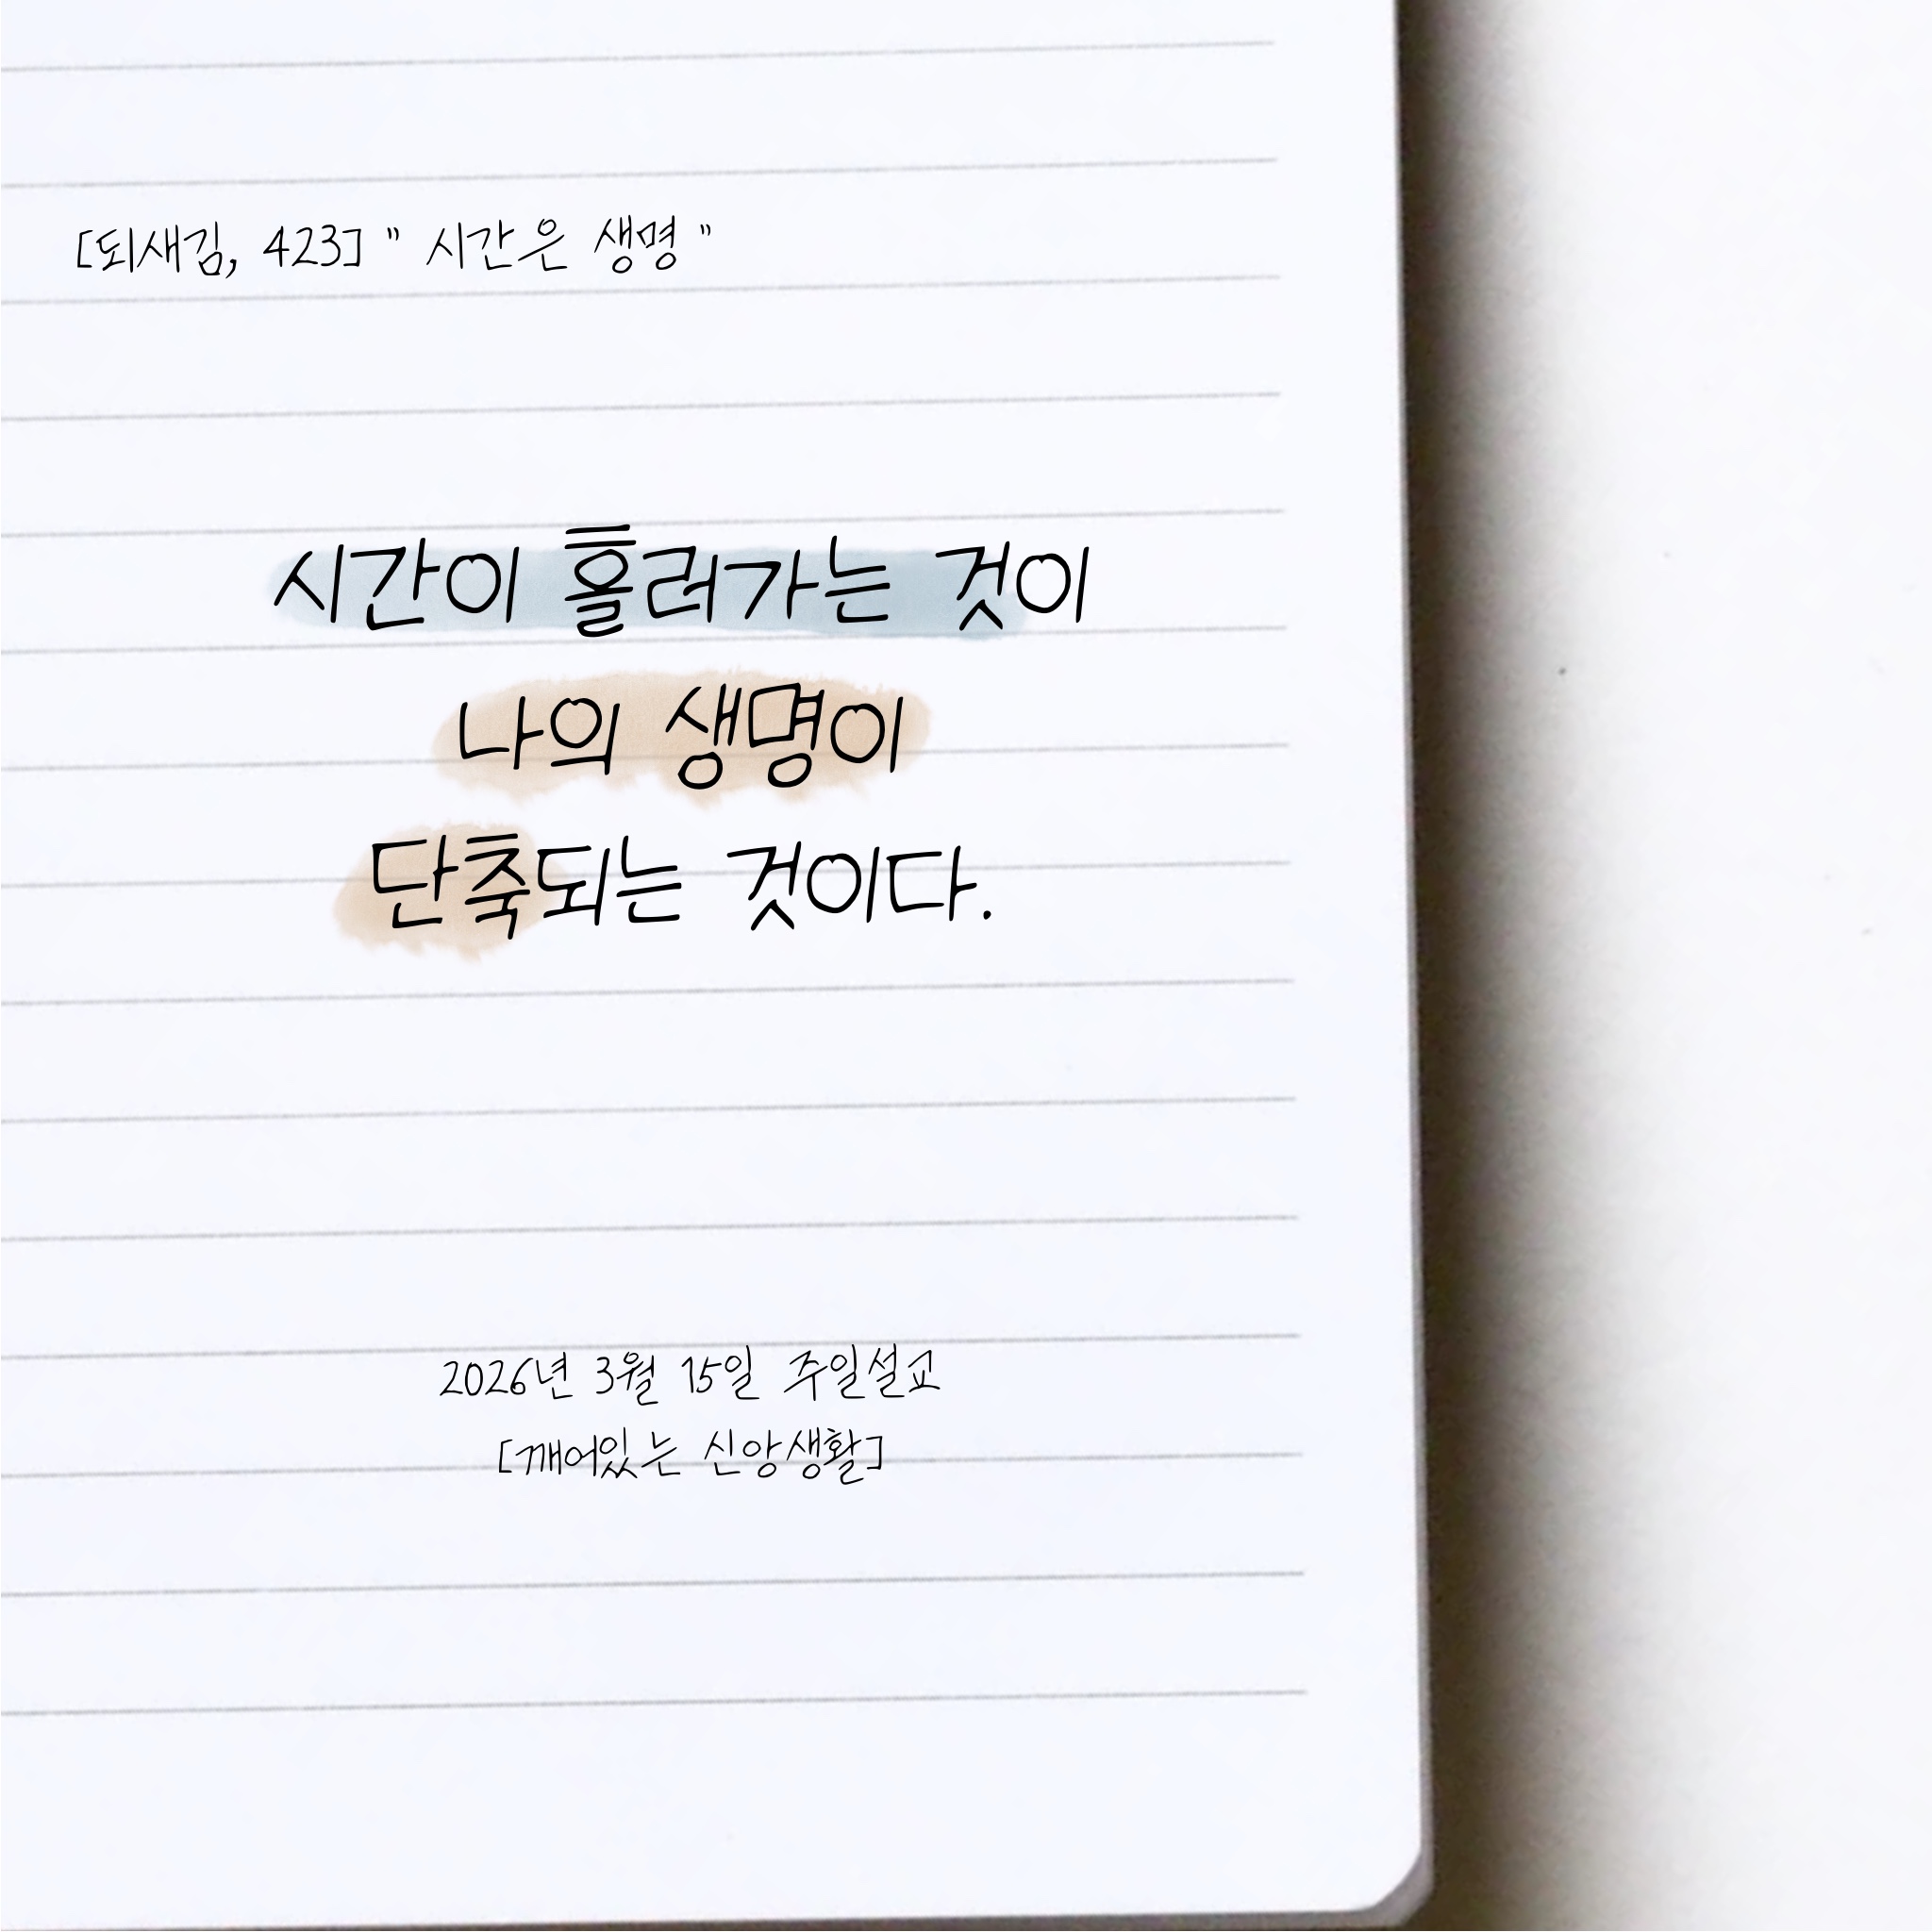 [되새김, 423] " 시간은 생명 "
시간이 흘러가는 것이
나의 생명이
단축되는 것이다.
2026년 3월 15일 주일설교
[깨어있는 신앙생활]